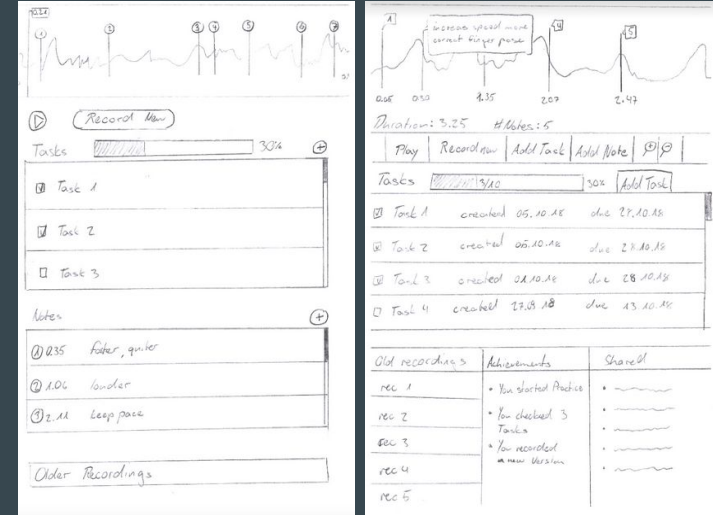 1
2
3
4
5
6
7
Record New
Tasks 30% +
Task 1
Task 2
Task 3
Notes +
1 0.35 faster, quiter
2 1.06 louder
3 2.11 keep pace
Older Recordings
1
increase speed more
correct finger pose
4
5
0.05 0.50 1.35 2.07 2.47
Duration: 3.25 # Notes: 5
Play Record now Add Task Add Note
Tasks 3/10 30% Add Task
Task 1 created 05.10.18 due 28.10.18
Task 2 created 05.10.18 due 28.10.18
Task 3 created 01.10.18 due 28.10.18
Task 4 created 27.09.18 due 13.10.18
Old recordings Achievements Shared
rec 1
rec 2
rec 3
rec 4
rec 5
• You started Practice
• You checked 3
Tasks
• You recorded
a new Version